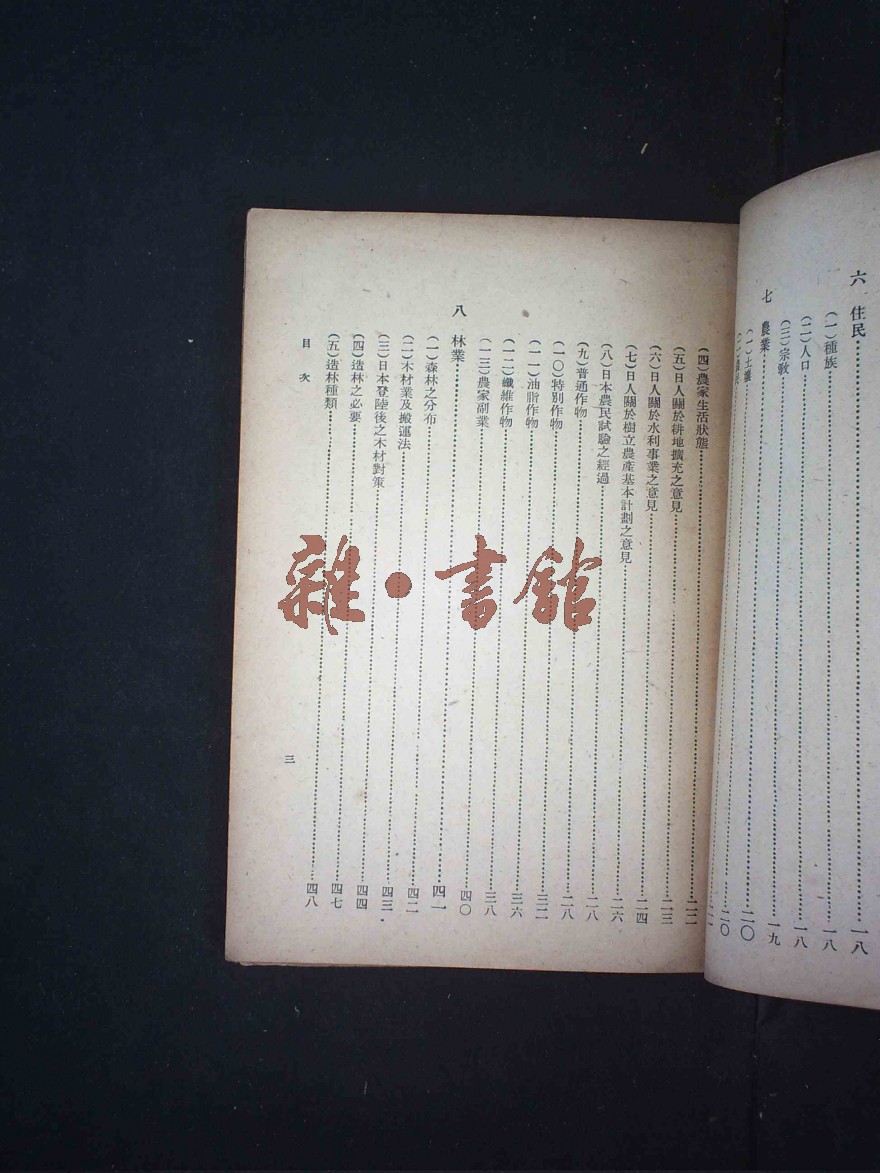 六 住民……一八
(一)種族……一八
(二)人口……一八
(三)宗教……一九
七 農業……二〇
(一)土壤……二〇
(四)農家生活狀態……二二
(五)日人關於耕地擴充之意見……二三
(六)日人關於水利事業之意見……二四
(七)日人關於樹立農產基本計劃之意見……二六
(八)日本農民試驗之經過……二八
(九)普通作物……二八
(一〇)特別作物……三二
(一一)油脂作物……三六
(一二)纖維作物……三八
(一三)農家副業……四〇
八 林業……四一
(一)森林之分布……四二
(二)木材業及搬運法……四三
(三)日本登陸後之木材對策……四四
(四)造林之必要……四七
(五)造林種類……四八
目次
三
雜·書館